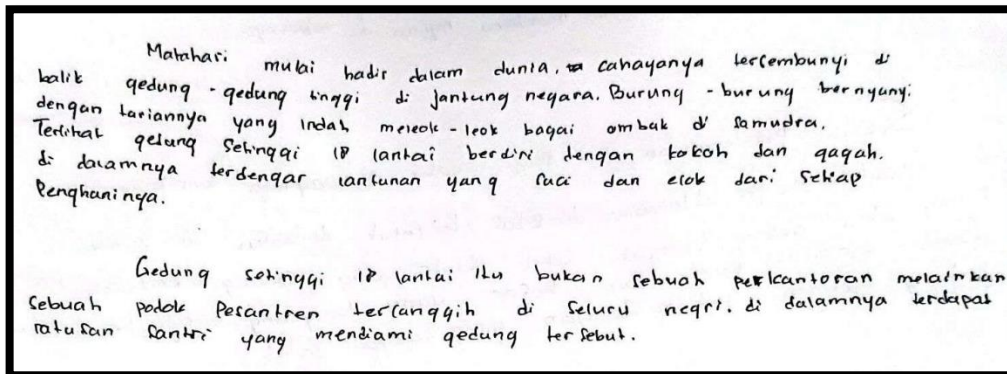 Matahari mulai hadir dalam dunia, cahayanya tersembunyi di
balik gedung - gedung tinggi di jantung negara. Burung - burung bernyanyi
dengan tariannya yang indah meleok - leok bagai ombak di samudra.
Terlihat gedung setinggi 18 lantai berdiri dengan kokoh dan gagah.
di dalamnya terdengar lantunan yang suci dan elok dari setiap
Penghuninya.
Gedung setinggi 18 lantai itu bukan sebuah perkantoran melainkan
sebuah podok Pesantren tercanggih di seluru negri. di dalamnya terdapat
ratusan santri yang mendiami gedung tersebut.